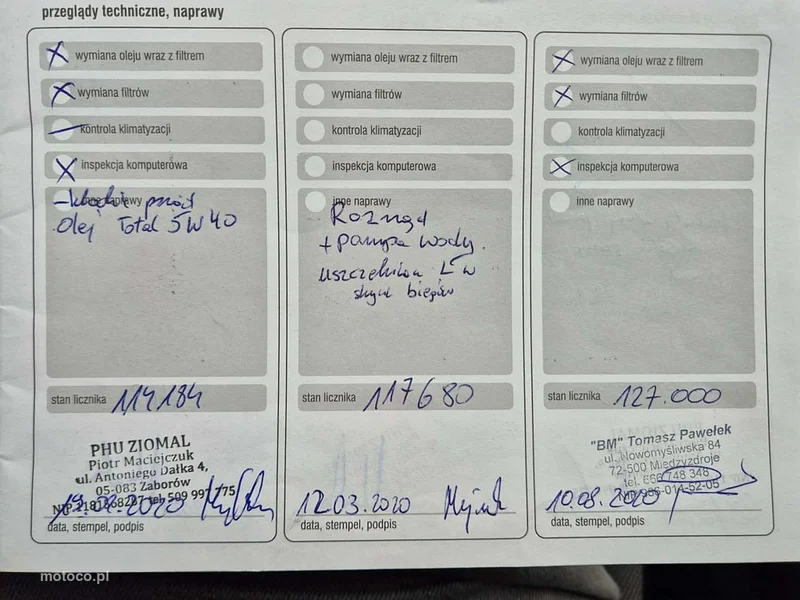 przeglądy techniczne, naprawy
wymiana oleju wraz z filtrem
wymiana filtrów
kontrola klimatyzacji
inspekcja komputerowa
inne naprawy
przód
Olej Total 5W40
stan licznika 114184
PHU ZIOMAL
Piotr Maciejczuk
ul. Antoniego Dałka 4,
05-083 Zaborów
tel. 509 997 775
2020
data, stempel, podpis
wymiana oleju wraz z filtrem
wymiana filtrów
kontrola klimatyzacji
inspekcja komputerowa
inne naprawy
Rozrząd
+ pompa wody.
skrzyni biegów
stan licznika 117680
12.03.2020
data, stempel, podpis
wymiana oleju wraz z filtrem
wymiana filtrów
kontrola klimatyzacji
inspekcja komputerowa
inne naprawy
stan licznika 127.000
"BM" Tomasz Pawełek
ul. Nowomyśliwska 84
72-500 Międzyzdroje
tel. 666 748 348
10.08.2020
data, stempel, podpis
motoco.pl